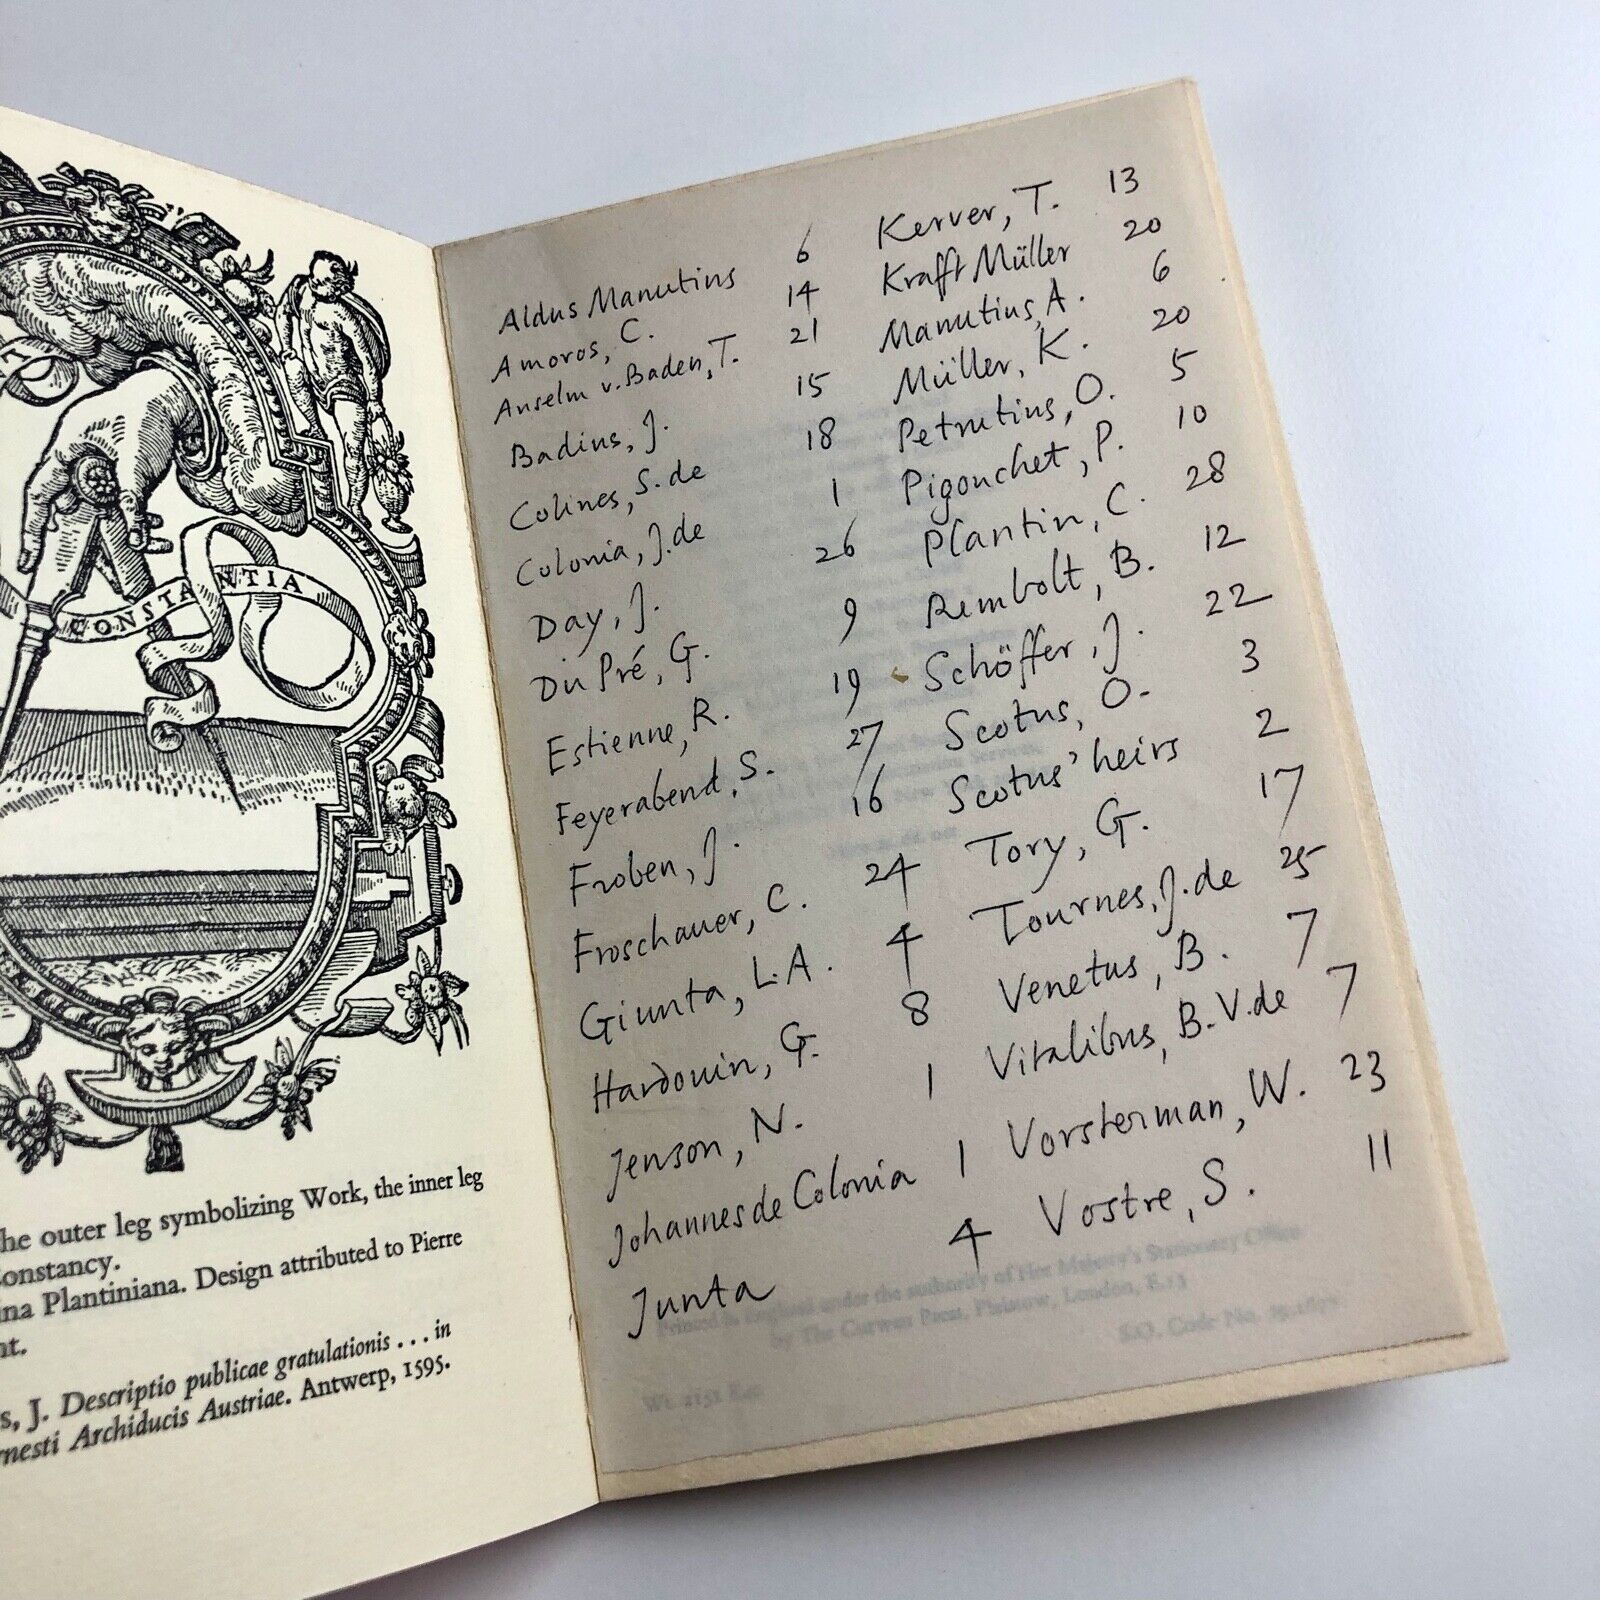 CONSTANTIA
he outer leg symbolizing Work, the inner leg
onstancy.
ina Plantiniana. Design attributed to Pierre
nt.
s, J. Descriptio publicae gratulationis . . . in
rnesti Archiducis Austriae. Antwerp, 1595.
Aldus Manutius 6
Amoros, C. 14
Anselm v. Baden, T. 21
Badius, J. 15
Colines, S. de 18
Colonia, J. de 1
Day, J. 26
Du Pré, G. 9
Estienne, R. 19
Feyerabend, S. 27
Froben, J. 16
Froschauer, C. 24
Giunta, L.A. 4
Hardouin, G. 8
Jenson, N. 1
Johannes de Colonia 1
Junta 4
Kerver, T. 13
Krafft Müller 20
Manutius, A. 6
Müller, K. 20
Petrutius, O. 5
Pigouchet, P. 10
Plantin, C. 28
Rembolt, B. 12
Schöffer, J. 22
Scotus, O. 3
Scotus' heirs 2
Tory, G. 17
Tournes, J. de 25
Venetus, B. 7
Vitalibus, B. V. de 7
Vorsterman, W. 23
Vostre, S. 11
Printed in England under the authority of Her Majesty's Stationery Office
by The Curwen Press, Plaistow, London, E.13